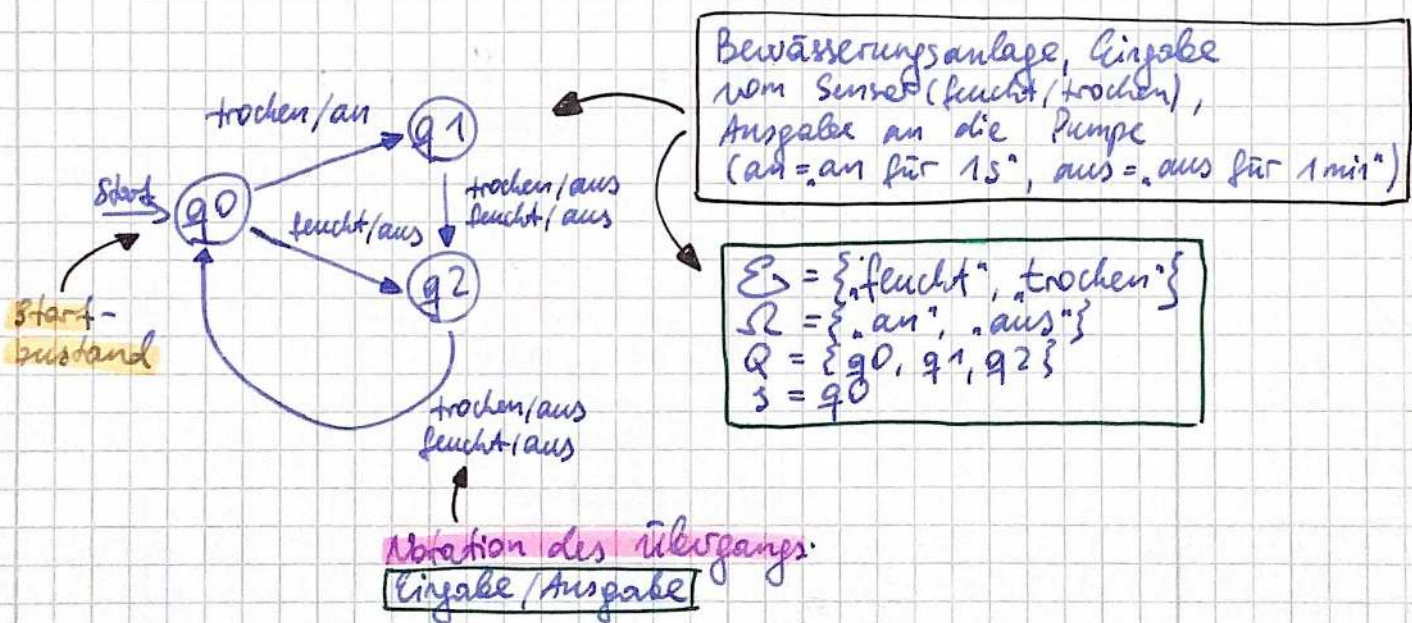 Bewässerungsanlage, Eingabe
vom Sensor (feucht/trocken),
Ausgabe an die Pumpe
(an = „an für 1s", aus = „aus für 1min")
trocken/an
q1
Start
q0
trocken/aus
feucht/aus
feucht/aus
q2
Start-
zustand
Σ = {„feucht", „trocken"}
Ω = {„an", „aus"}
Q = {q0, q1, q2}
s = q0
trocken/aus
feucht/aus
Notation des Übergangs:
Eingabe/Ausgabe